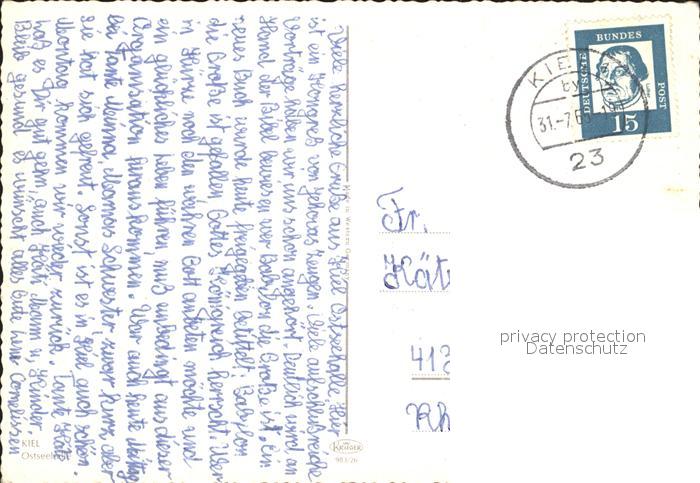 Viele herzliche Grüße aus Kiel Ostseehalle. Hier
ist ein Kongreß von Jehovas Zeugen. Viele aufschlußreiche
Vorträge haben wir uns schon angehört. Deutlich wird an
Hand der Bibel bewiesen wer Babylon die Große ist. Ein
neues Buch wurde heute freigegeben betitelt: Babylon
die Große ist gefallen Gottes Königreich herrscht. Wer
in Kürze noch den wahren Gott anbeten möchte und
ein glückliches Leben führen, muß unbedingt aus dieser
Organisation herauskommen. War auch heute Mittag
bei Tante Schwester zwar kurz, aber
sie hat sich gefreut. Sonst ist es in Kiel auch schön.
Montag kommen wir wieder zurück. Tante
daß es Dir gut geht, auch Mann u, Kinder.
Bleib gesund es wünscht alles Gute Deine Cornelissen
KIEL
KRÜGER
981/26
DEUTSCHE
BUNDES
POST
15
KIEL
31.-7.6
23
Fr.
Kät
413
Rh
privacy protection
Datenschutz